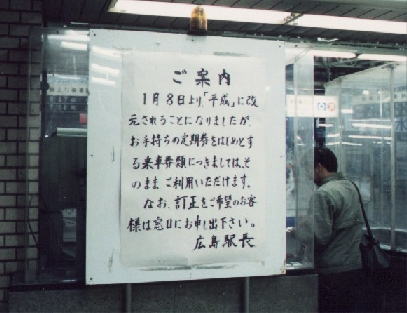 ご案内
1月8日より、「平成」に改
元されることになりましたが
お手持ちの定期券をはじめとす
る乗車券類につきましては、そ
のままご利用いただけます。
なお、訂正をご希望のお客
様は窓口にお申し出下さい。
広島駅長